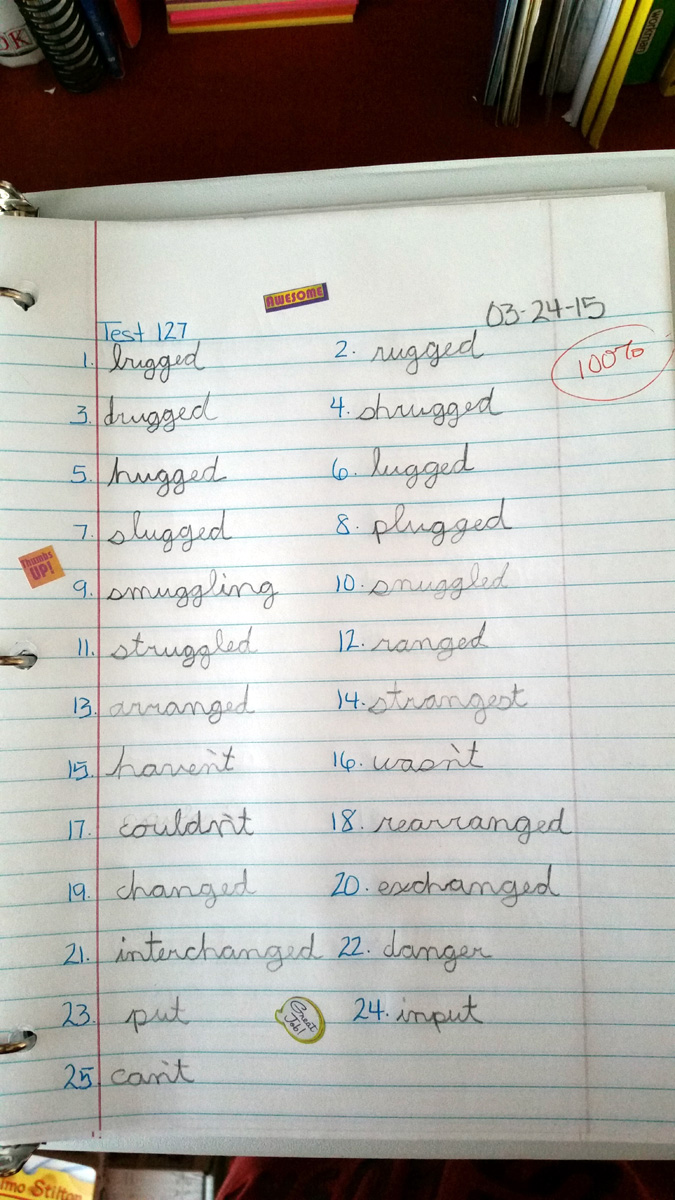 OK
AWESOME
03-24-15
Test 127
1. bugged 2. rugged
100%
3. drugged 4. shrugged
5. hugged 6. lugged
7. slugged 8. plugged
Thumbs
UP!
9. smuggling 10. snuggled
11. struggled 12. ranged
13. arranged 14. strangest
15. haven't 16. wasn't
17. couldn't 18. rearranged
19. changed 20. exchanged
21. interchanged 22. danger
23. put 24. input
Great
Job!
25. can't
mo Stilton